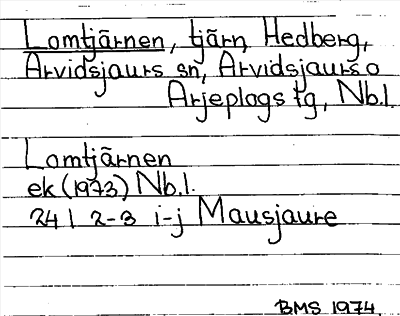 Lomtjärnen, tjärn, Hedberg,
Arvidsjaurs sn, Arvidsjaurs o
Arjeplogs tg, Nb.l.
Lomtjärnen
ek (1973) Nb.l.
24 I 2-3 i-j Mausjaure
BMS 1974